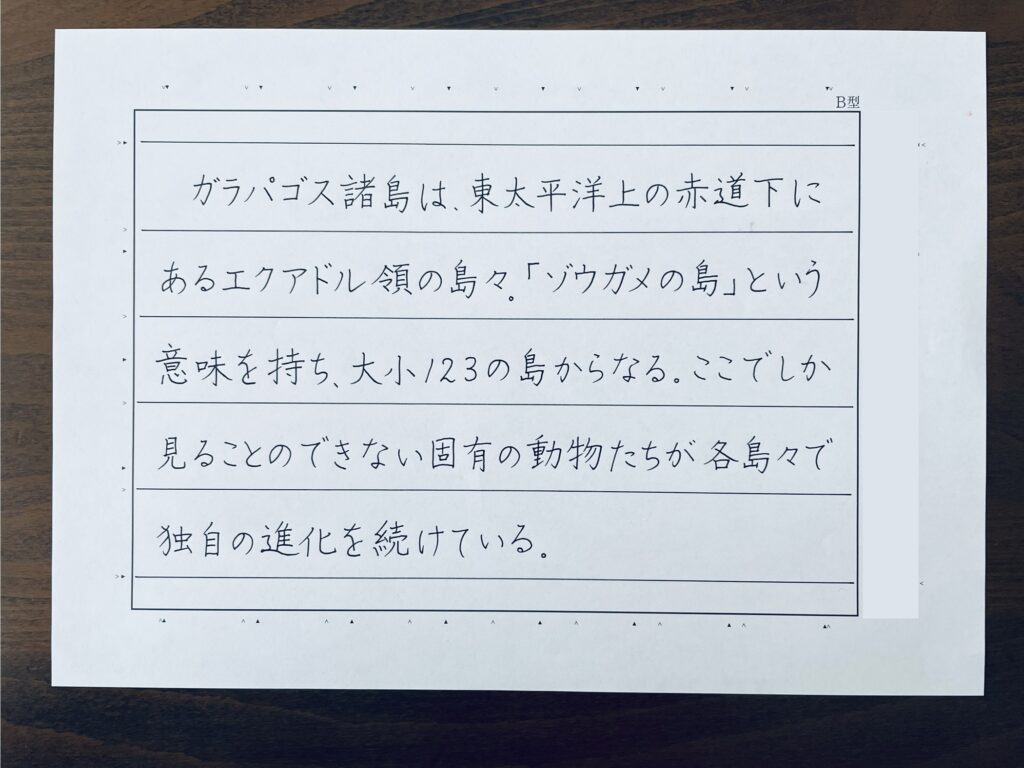 B型
ガラパゴス諸島は、東太平洋上の赤道下に
あるエクアドル領の島々。「ゾウガメの島」という
意味を持ち、大小123の島からなる。ここでしか
見ることのできない固有の動物たちが各島々で
独自の進化を続けている。